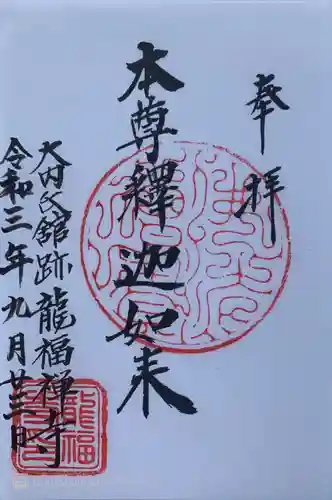 奉拝
本尊釋迦如来
大内氏館跡龍福禅寺
令和三年九月廿三日